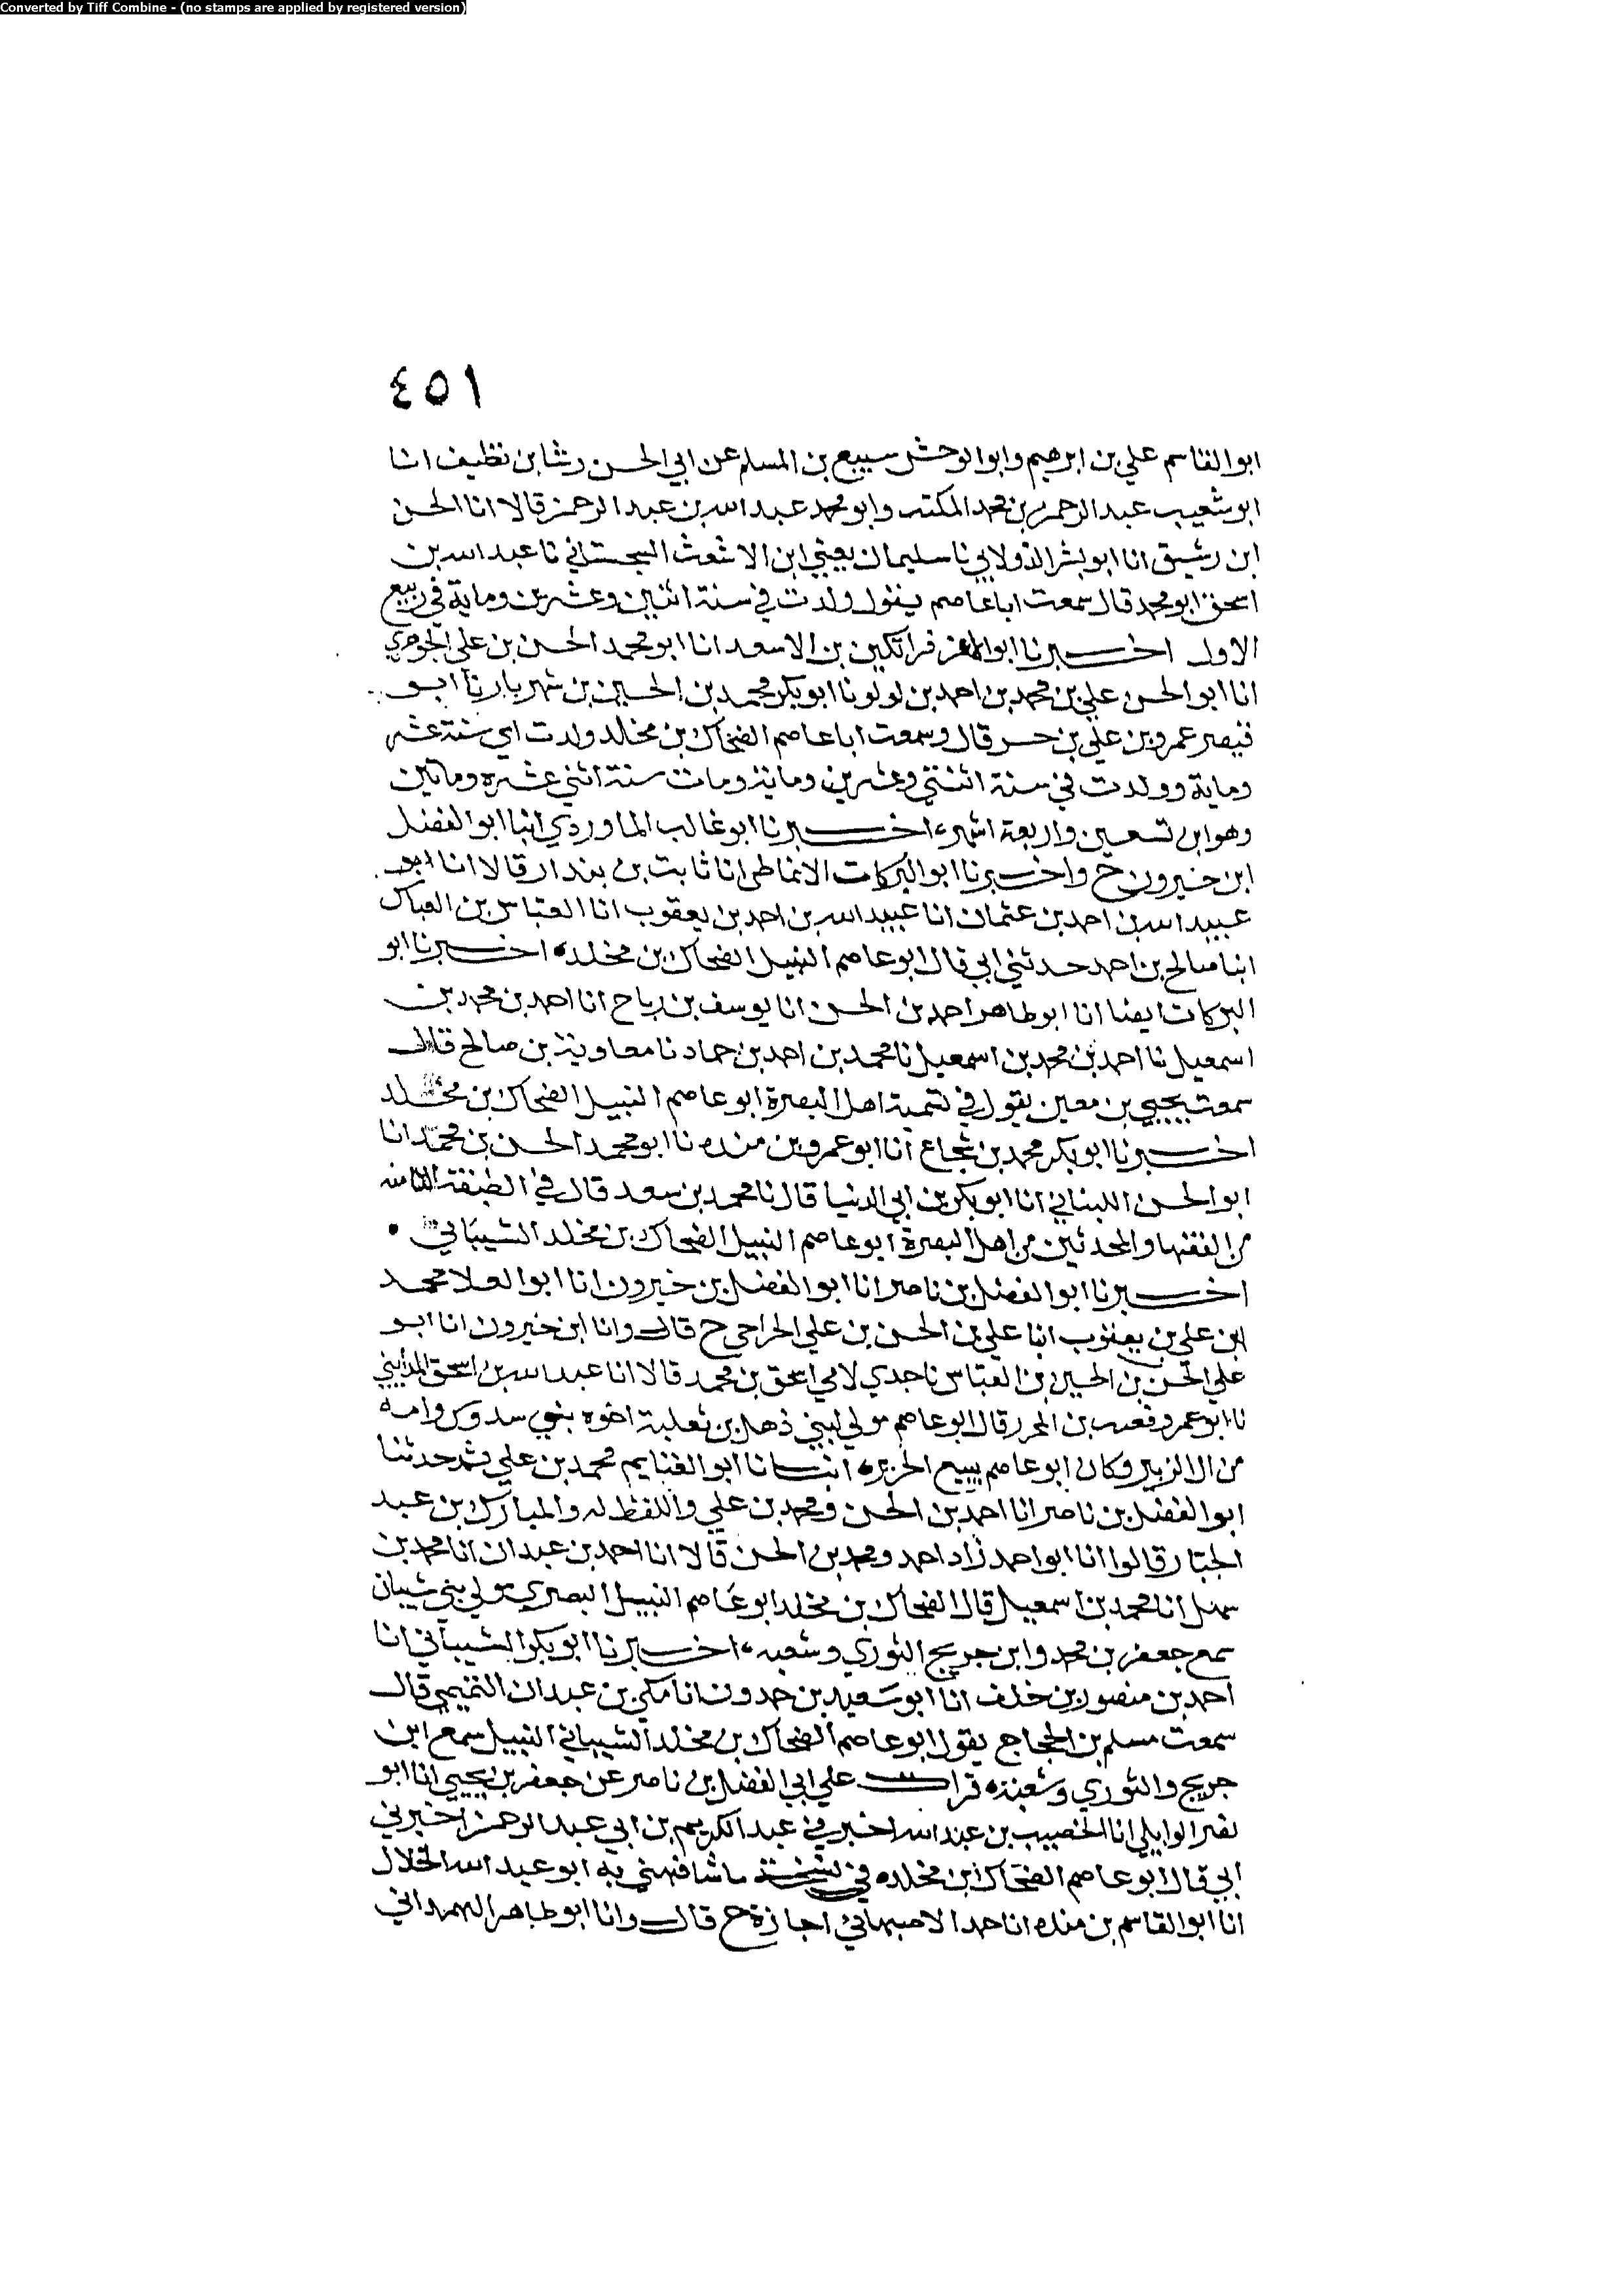 Converted by Tiff Combine - (no stamps are applied by registered version)
٤٥١
ابو القاسم علي بن ابرهيم وابو الوحش سبيع بن المسلم عن ابي الحسن رشا بن نظيف انا
ابو شعيب عبد الرحمن بن محمد المكتب وابو محمد عبد الله بن عبد الرحمن قالا انا الحسن
ابن رشيق انا ابو بشر الدولابي نا سليمان يعني ابن الاشعث السجستاني نا عبد الله بن
اسحق ابو محمد قال سمعت ابا عاصم يقول ولدت في سنة اثنين وعشرين وماية في ربيع
الاول اخبرنا ابو الاعز قراتكين بن الاسعد انا ابو محمد الحسن بن علي الجوهري
انا ابو الحسن علي بن محمد بن احمد بن لولو نا ابو بكر محمد بن الحسين بن شهريار نا ابو
عمرو بن علي بن حر قال وسمعت ابا عاصم الضحاك بن مخلد ولدت امي سنة عشر
وماية وولدت في سنة اثنتي وعشرين وماية ومات سنة اثني عشره وماتين
وهو ابن تسعين واربعة اشهر اخبرنا ابو غالب الماوردي انبا ابو الفضل
ابن خيرون ح واخبرنا ابو البركات الانماطي انا ثابت بن بندار قالا انا ابو
عبيد الله بن احمد بن عثمان انا عبيد الله بن احمد بن يعقوب انا العباس بن العباس
انبا صالح بن احمد حدثني ابي قال ابو عاصم النبيل الضحاك بن مخلد اخبرنا ابو
البركات ايضا انا ابو طاهر احمد بن الحسن انا يوسف بن رباح انا احمد بن محمد بن
اسمعيل نا احمد بن محمد بن اسمعيل نا محمد بن احمد بن حماد نا معاوية بن صالح قال
سمعت يحيي بن معين يقول في تسمية اهل البصرة ابو عاصم النبيل الضحاك بن مخلد
اخبرنا ابو بكر محمد بن شجاع انا ابو عمرو بن منده نا ابو محمد الحسن بن محمد انا
ابو الحسن اللبناني انا ابو بكر بن ابي الدنيا قال نا محمد بن سعد قال في الطبقة
من الفقها والمحدثين من اهل البصرة ابو عاصم النبيل الضحاك بن مخلد الشيباني
اخبرنا ابو الفضل بن ناصر انا ابو الفضل بن خيرون انا ابو العلا محمد
ابن علي بن يعقوب انبا علي بن الحسن بن علي الجراحي ح قال وانا ابن خيرون انا ابو
علي الحسن بن الحسين بن العباس نا جدي لامي اسحق بن محمد قالا انا عبد الله بن اسحق المدايني
نا ابو عمرو قعنب بن المحرر قال ابو عاصم مولي لبني ذهل بن ثعلبة اخوه بنو سدوس وامه
من الالزبير وكان ابو عاصم يبيع الحرير انبانا ابو الغنايم محمد بن علي ثم حدثنا
ابو الفضل بن ناصر انا احمد بن الحسن ومحمد بن علي واللفظ له والمبارك بن عبد
الجبار قالوا انا ابو احمد زاد احمد ومحمد بن الحسن قالا انا احمد بن عبدان انا محمد بن
سهل انا محمد بن اسمعيل قال الضحاك بن مخلد ابو عاصم النبيل البصري مولي بني شيبان
سمع جعفر بن محمد وابن جريج الثوري وشعبه اخبرنا ابو بكر الشيباني انا
احمد بن منصور بن خلف انا ابو سعيد بن حمدون انا مكي بن عبدان التميمي قال
سمعت مسلم بن الحجاج يقول ابو عاصم الضحاك بن مخلد الشيباني النبيل سمع ابن
جريج والثوري وشعبة قرات علي ابي الفضل بن ناصر عن جعفر بن يحيي انا ابو
نصر الوايلي انا الخصيب بن عبد الله اخبرني عبد الكريم بن ابي عبد الرحمن اخبرني
ابي قال ابو عاصم الضحاك ابن مخلد في نسخة ما شافهني به ابو عبد الله الخلال
انا ابو القاسم بن منده انا حمد الاصبهاني اجازة ح قال وانا ابو طاهر الهمداني